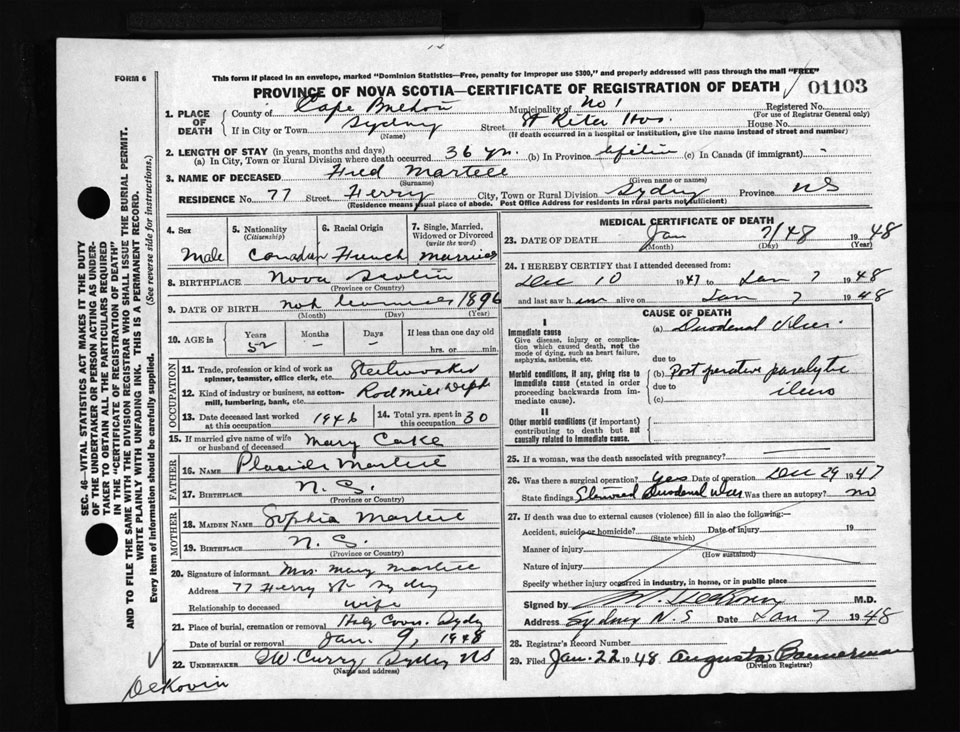 FORM 6
This form if placed in an envelope, marked "Dominion Statistics—Free, penalty for improper use $300," and properly addressed will pass through the mail "FREE"
PROVINCE OF NOVA SCOTIA—CERTIFICATE OF REGISTRATION OF DEATH
01103
1. PLACE OF DEATH
County of Cape Breton Municipality of No 1 Registered No.
(For use of Registrar General only)
If in City or Town Sydney Street St Rita Hos. House No.
(Name) (If death occurred in a hospital or institution, give the name instead of street and number)
2. LENGTH OF STAY (in years, months and days)
(a) In City, Town or Rural Division where death occurred 36 yr. (b) In Province Lifetime (c) In Canada (if immigrant) -
3. NAME OF DECEASED Fred Martell
(Surname) (Given name or names)
RESIDENCE No. 77 Street Ferry City, Town or Rural Division Sydney Province NS
(Residence means usual place of abode. Post Office Address for residents in rural parts not sufficient)
4. Sex Male
5. Nationality (Citizenship) Canadian
6. Racial Origin French
7. Single, Married, Widowed or Divorced (write the word) Married
8. BIRTHPLACE Nova Scotia
(Province or Country)
9. DATE OF BIRTH 1896
(Month) (Day) (Year)
10. AGE in Years 52 Months - Days - If less than one day old
hrs. or min.
OCCUPATION
11. Trade, profession or kind of work as spinner, teamster, office clerk, etc. Steelworker
12. Kind of industry or business, as cotton-mill, lumbering, bank, etc. Rod mill Dept
13. Date deceased last worked at this occupation 1946
14. Total yrs. spent in this occupation 30
15. If married give name of wife or husband of deceased Mary Cake
FATHER
16. Name Placide Martell
17. Birthplace N. S.
(Province or Country)
MOTHER
18. Maiden Name Sophia Martell
19. Birthplace N. S.
(Province or Country)
20. Signature of informant Mrs. Mary Martell
Address 77 Ferry St Sydney
Relationship to deceased wife
21. Place of burial, cremation or removal Holy Sydney
Date of burial or removal Jan. 9, 1948
22. UNDERTAKER Curry Sydney NS
(Name and address)
DeKovin
MEDICAL CERTIFICATE OF DEATH
23. DATE OF DEATH Jan 7/48 1948
(Month) (Day) (Year)
24. I HEREBY CERTIFY that I attended deceased from:
Dec 10 1947 to Jan 7 1948
and last saw him alive on Jan 7 1948
CAUSE OF DEATH
I
Immediate cause
Give disease, injury or complication which caused death, not the mode of dying, such as heart failure, asphyxia, asthenia, etc.
(a) Duodenal Ulcer.
due to
Morbid conditions, if any, giving rise to immediate cause (stated in order proceeding backwards from immediate cause).
(b) Post operative paralytic
due to
(c) ileus
II
Other morbid conditions (if important) contributing to death but not causally related to immediate cause.
25. If a woman, was the death associated with pregnancy?
26. Was there a surgical operation? yes Date of operation Dec 29 1947
State findings Duodenal Ulcer Was there an autopsy? no
27. If death was due to external causes (violence) fill in also the following:—
Accident, suicide or homicide? Date of injury 19
(State which)
Manner of injury
(How sustained)
Nature of injury
Specify whether injury occurred in industry, in home, or in public place
Signed by M.D.
Address Sydney N.S Date Jan 7 1948
28. Registrar's Record Number
29. Filed Jan. 22 1948 Augusta Bannerman
(Division Registrar)
SEC. 46—VITAL STATISTICS ACT MAKES IT THE DUTY
OF THE UNDERTAKER OR PERSON ACTING AS UNDERTAKER TO OBTAIN ALL THE PARTICULARS REQUIRED
IN THE "CERTIFICATE OF REGISTRATION OF DEATH"
AND TO FILE THE SAME WITH THE DIVISION REGISTRAR WHO SHALL ISSUE THE BURIAL PERMIT.
WRITE PLAINLY WITH UNFADING INK. THIS IS A PERMANENT RECORD.
Every item of information should be carefully supplied. (See reverse side for instructions.)